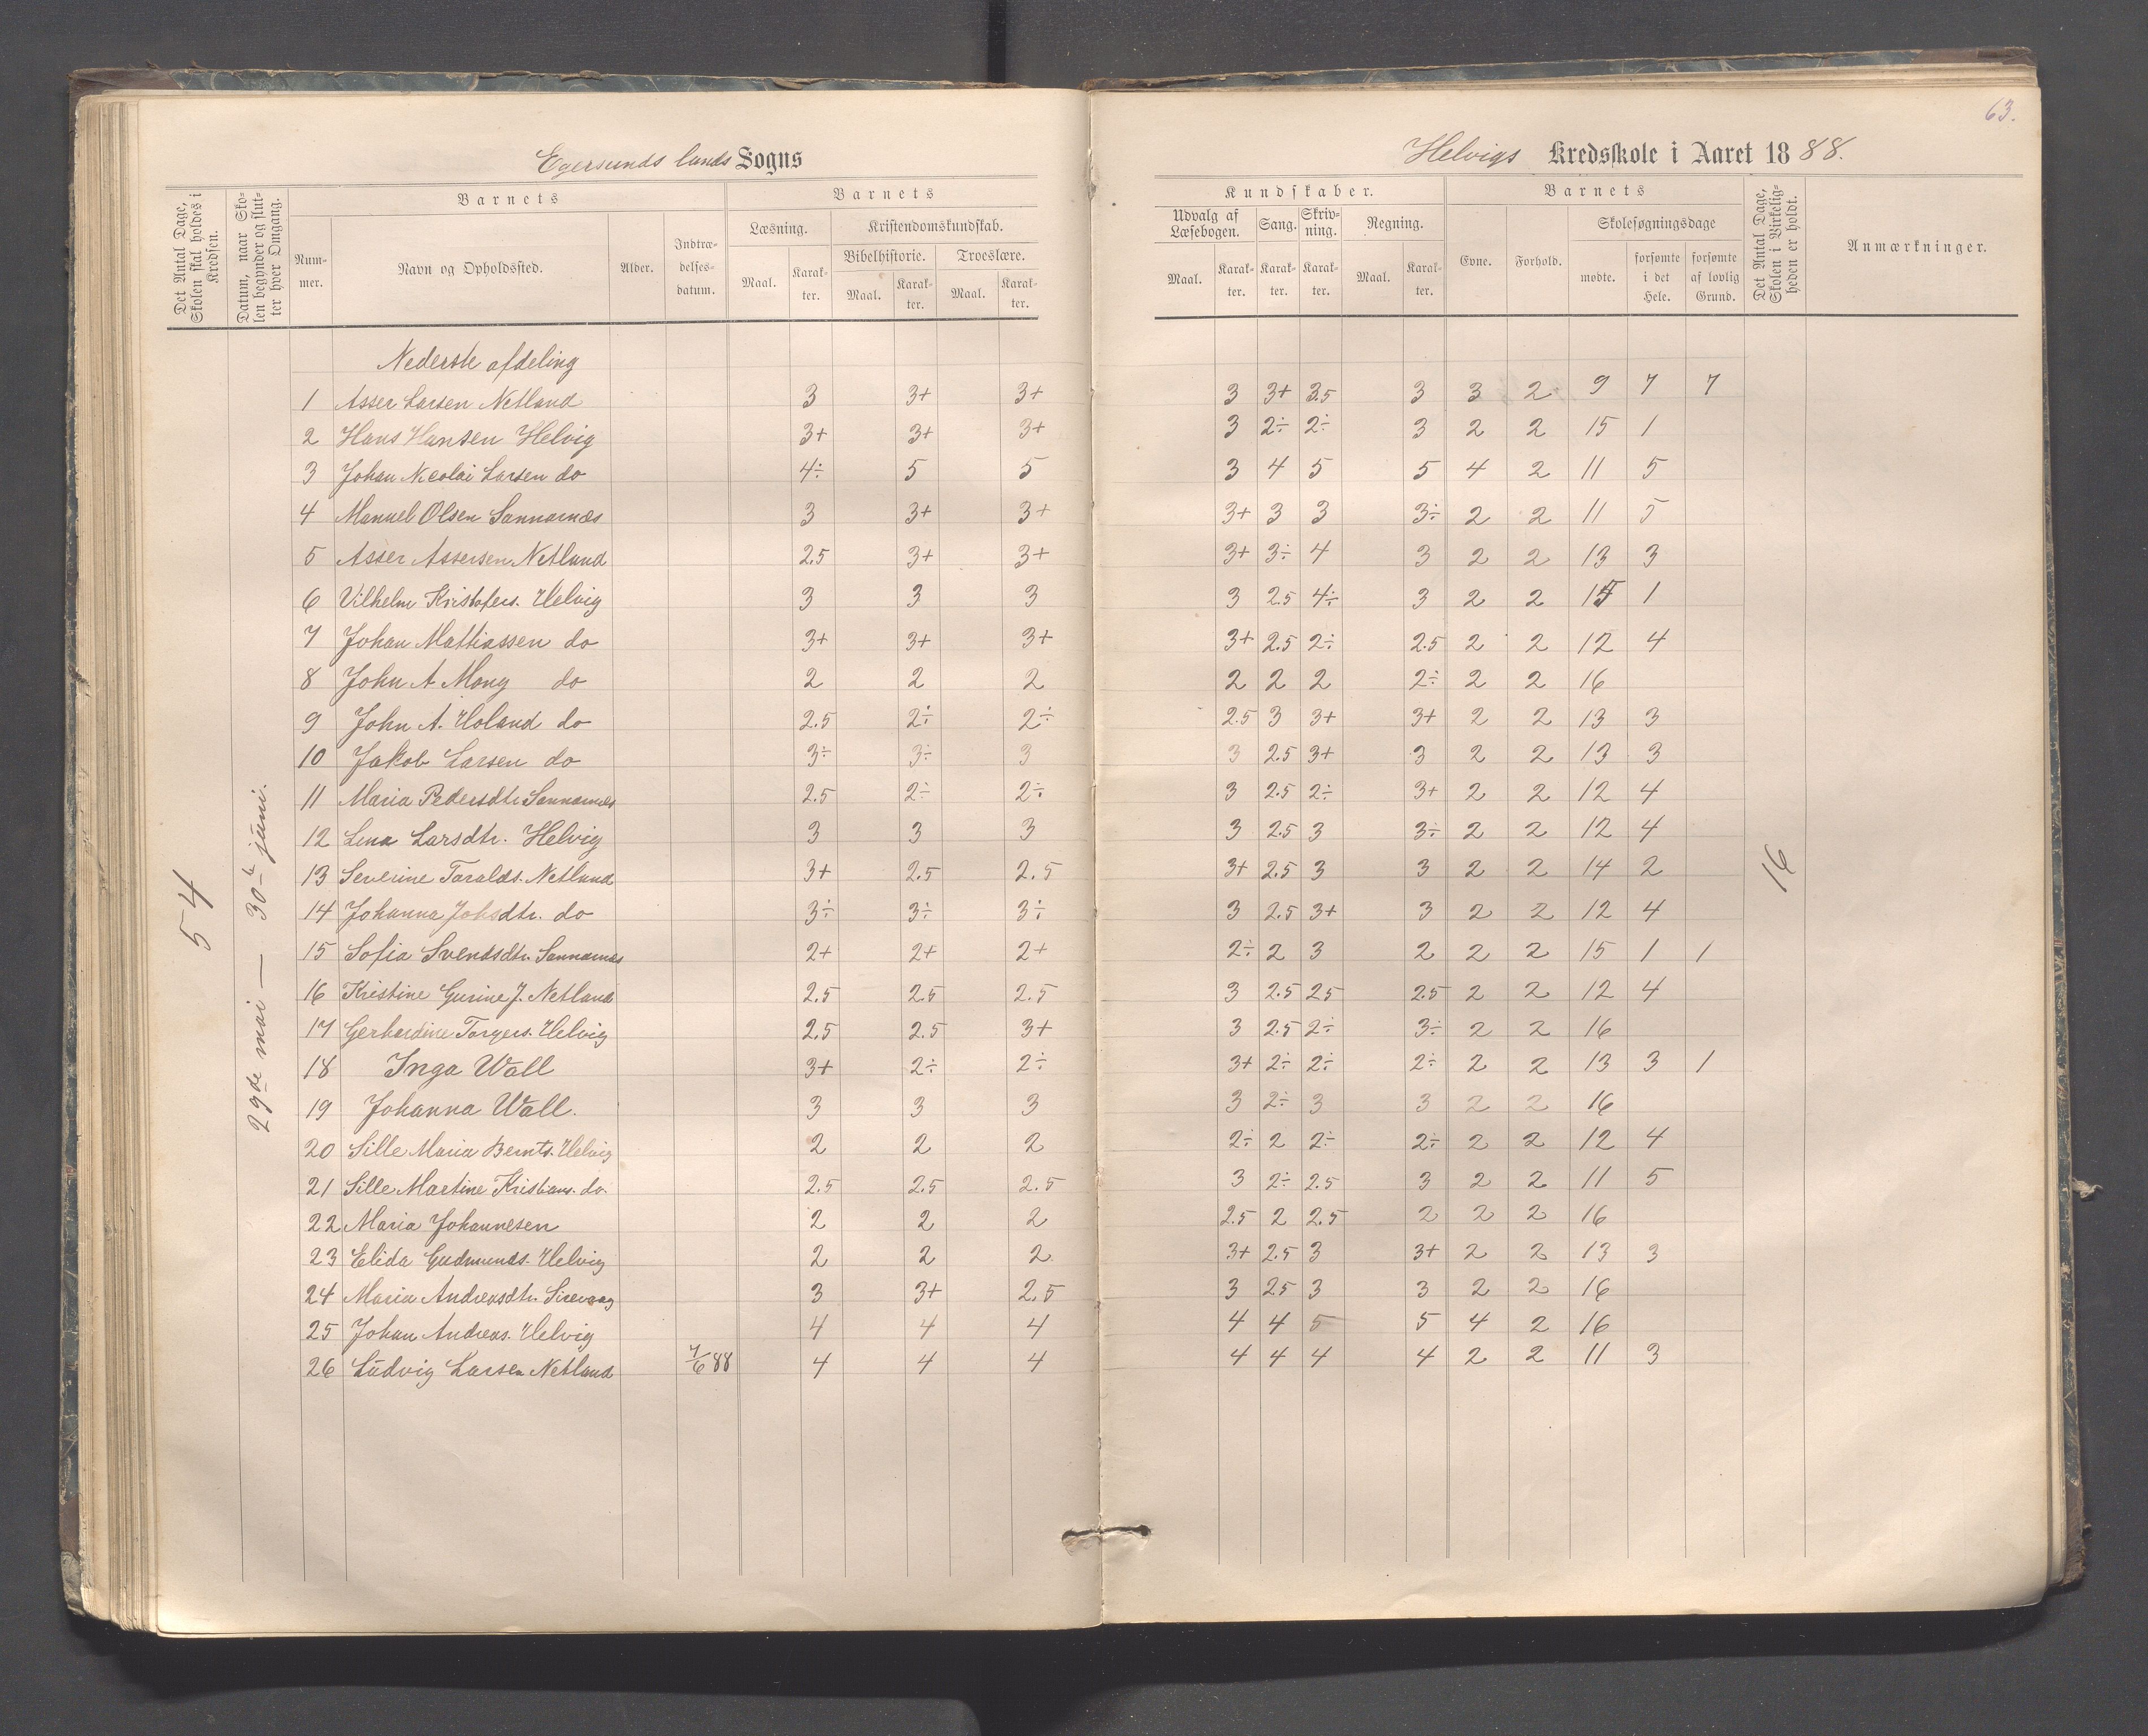 63.
Egersunds lands Sogns
Helvigs Kredsskole i Aaret 1888.
Det Antal Dage, Skolen skal holdes i Kredsen.
Datum, naar Skolen begynder og slutter hver Omgang.
Barnets
Nummer.
Navn og Opholdssted.
Alder.
Indtrædelsesdatum.
Barnets
Læsning.
Maal.
Karakter.
Kristendomskundskab.
Bibelhistorie.
Maal.
Karakter.
Troeslære.
Maal.
Karakter.
Kundskaber.
Udvalg af Læsebogen.
Maal.
Karakter.
Sang.
Karakter.
Skrivning.
Karakter.
Regning.
Maal.
Karakter.
Barnets
Evne.
Forhold.
Skolesøgningsdage
mødte.
forsømte i det Hele.
forsømte af lovlig Grund.
Det Antal Dage, Skolen i Virkeligheden er holdt.
Anmærkninger.
54
29de mai — 30te juni.
16
Nederste afdeling
1 Asser Larsen Netland 3 3+ 3+ 3 3+ 3.5 3 3 2 9 7 7
2 Hans Hansen Helvig 3+ 3+ 3+ 3 2÷ 2÷ 3 2 2 15 1
3 Johan Nicolai Larsen do 4÷ 5 5 3 4 5 5 4 2 11 5
4 Manuel Olsen Sannarnæs 3 3+ 3+ 3+ 3 3 3÷ 2 2 11 5
5 Asser Assersen Netland 2.5 3+ 3+ 3+ 3÷ 4 3 2 2 13 3
6 Vilhelm Kristofers. Helvig 3 3 3 3 2.5 4÷ 3 2 2 15 1
7 Johan Mathiassen do 3+ 3+ 3+ 3+ 2.5 2÷ 2.5 2 2 12 4
8 John A Mong do 2 2 2 2 2 2 2÷ 2 2 16
9 John A. Holand do 2.5 2÷ 2÷ 2.5 3 3+ 3+ 2 2 13 3
10 Jakob Larsen do 3÷ 3÷ 3 3 2.5 3+ 3 2 2 13 3
11 Maria Pedersdtr. Sannarnæs 2.5 2÷ 2÷ 3 2.5 2÷ 3+ 2 2 12 4
12 Lina Larsdtr. Helvig 3 3 3 3 2.5 3 3÷ 2 2 12 4
13 Severine Taralds. Netland 3+ 2.5 2.5 3+ 2.5 3 3 2 2 14 2
14 Johanna Johsdtr. do 3÷ 3÷ 3÷ 3 2.5 3+ 3 2 2 12 4
15 Sofia Svendsdtr. Sannarnæs 2+ 2+ 2+ 2÷ 2 3 2 2 2 15 1 1
16 Kristine Gurine J. Netland 2.5 2.5 2.5 3 2.5 25 2.5 2 2 12 4
17 Gerhardine Torgers. Helvig 2.5 2.5 3+ 3 2.5 2÷ 3÷ 2 2 16
18 Inga Wall 3+ 2÷ 2÷ 3+ 2÷ 2÷ 2÷ 2 2 13 3 1
19 Johanna Wall. 3 3 3 3 2÷ 3 3 2 2 16
20 Sille Maria Bernts. Helvig 2 2 2 2÷ 2 2÷ 2÷ 2 2 12 4
21 Sille Martine Kristians. do. 2.5 2.5 2.5 3 2÷ 2.5 3 2 2 11 5
22 Maria Johannesen 2 2 2 2.5 2 2.5 2 2 2 16
23 Elida Gudmunds. Helvig 2 2 2 3+ 2.5 3 3+ 2 2 13 3
24 Maria Andreasdtr. Sirevaag 3 3+ 2.5 3 25 3 3 2 2 16
25 Johan Andreas. Helvig 4 4 4 4 4 5 5 4 2 16
26 Ludvig Larsen Netland 7/6 88 4 4 4 4 4 4 4 2 2 11 3